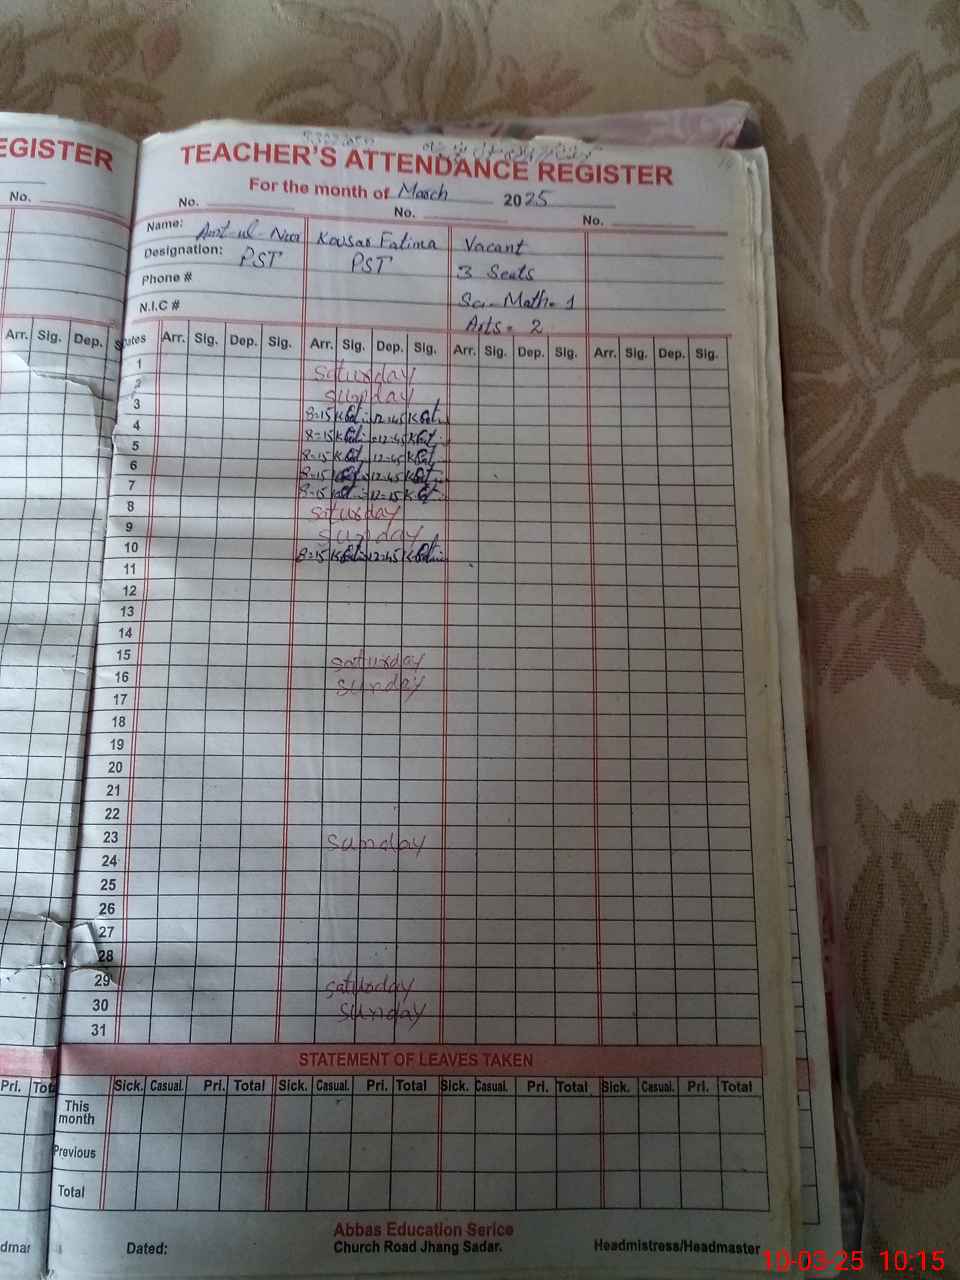 EGISTER
TEACHER'S ATTENDANCE REGISTER
For the month of March 2025
No.
No. No. No.
Name: Amt-ul-Noor Kousar Fatima Vacant
Designation: PST PST 3 Seats
Phone #
Sci-Math=1
N.I.C #
Arts=2
Arr. Sig. Dep. S
Dates Arr. Sig. Dep. Sig. Arr. Sig. Dep. Sig. Arr. Sig. Dep. Sig. Arr. Sig. Dep. Sig.
1 Saturday
2 Sunday
3 8=15 12=45
4 8=15 12=45
5 8=15 12=45
6 8=15 12=45
7 8=15 12=15
8 Saturday
9 Sunday
10 8=15 12=45
11
12
13
14
15 Saturday
16 Sunday
17
18
19
20
21
22
23 Sunday
24
25
26
27
28
29 Saturday
30 Sunday
31
STATEMENT OF LEAVES TAKEN
Pri. Tot
Sick. Casual. Pri. Total Sick. Casual. Pri. Total Sick. Casual. Pri. Total Sick. Casual. Pri. Total
This month
Previous
Total
Abbas Education Serice
Church Road Jhang Sadar.
dmar
Dated: Headmistress/Headmaster
10-03-25 10:15